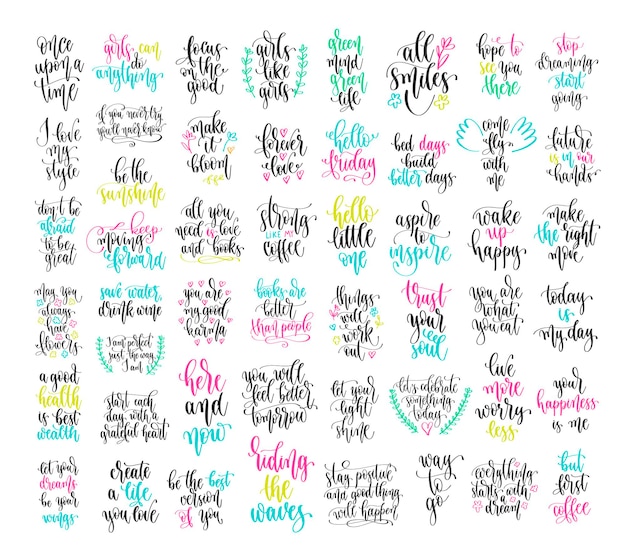 once
upon a
time
girls can
do
anything
focus
on the
good
girls
like
girls
green
mind
green
life
all
smiles
hope to
see you
there
stop
dreaming
start
going
I love
my
style
if you never try
you'll never know
be the
sunshine
make
it
bloom
forever
love
hello
friday
bad days
build
better days
come
fly
with
me
future
is in our
hands
don't be
afraid
to be
great
keep
moving
forward
all you
need is love
and books
strong
LIKE MY
coffee
hello
little
one
aspire
to
inspire
wake
up
happy
make
the right
move
may you
always
have
flowers
save water,
drink wine
I am perfect
just the way
I am
you are
my good
karma
books are
better
than people
things
will
work
out
trust
your
soul
you are
what
you eat
today
is
my day
a good
health
is best
wealth
start each
day with a
grateful heart
here
and
now
you will
feel better
tomorrow
let your
light
shine
let's celebrate
something
today
live
more
worry
less
your
happiness
is me
let your
dreams
be your
wings
create
a life
you love
be the best
version
of you
riding
the
waves
stay positive
and good thing
will happen
way
to
go
everything
starts with
dream
but
first
coffee